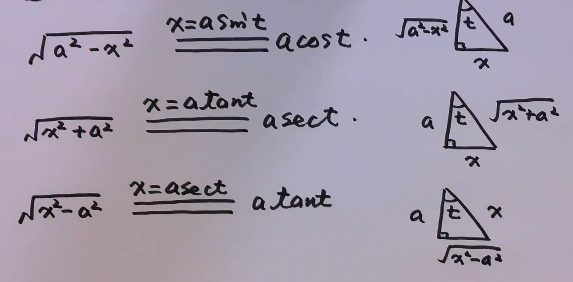 √(a²-x²) x=asint a cost. √(a²-x²) t a x
√(x²+a²) x=atant a sect. a t √(x²+a²) x
√(x²-a²) x=asect a tant a t x √(x²-a²)